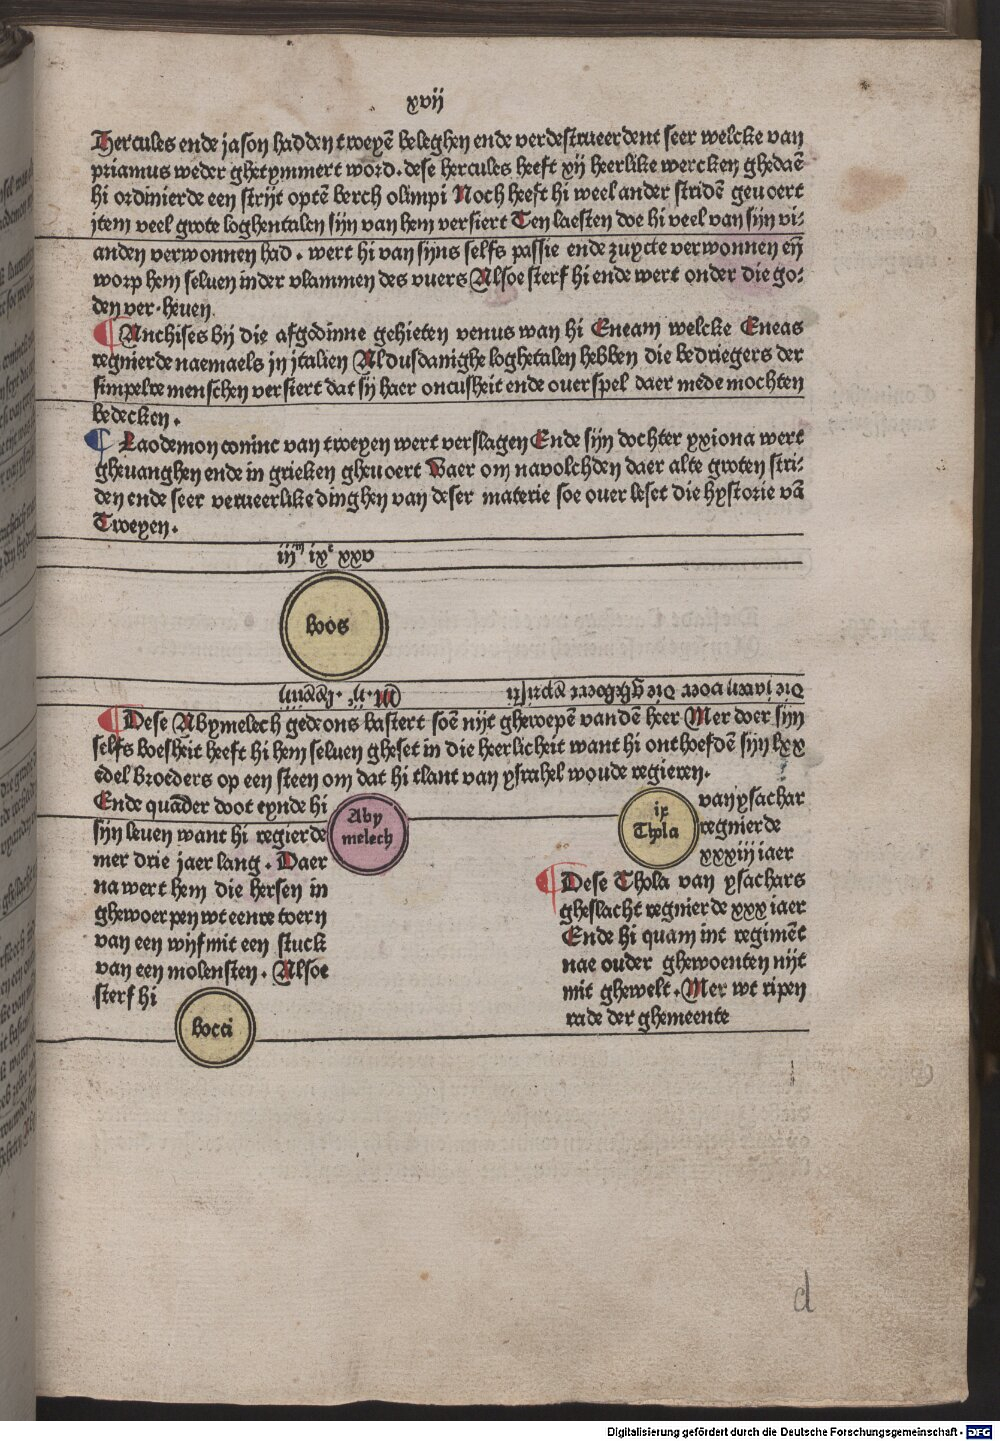 xvij
Hercules ende jason hadden troeyē beleghen ende verdestrueerdent seer welcke van
priamus weder ghetymmert word. dese hercules heeft xij heerlike wercken ghedaē
hi ordinierde een strijt optē berch olimpi Noch heeft hi weel ander stridē gevoert
jtem veel grote loghentalen sijn van hem versiert Ten laesten doe hi veel van sijn vi-
anden verwonnen had. wert hi van sijns selfs passie ende zuycte verwonnen eñ
worp hem seluen inder vlammen des vuers Alsoe sterf hi ende wert onder die go-
den ver-heuen.
Anchises bij die afgodinne gehieten venus wan hi Eneam welcke Eneas
regnierde naemaels jn jtalien Al dusdanighe loghetalen hebben die bedriegers der
simpelre menschen versiert dat sij haer oncusheit ende ouerspel daer mede mochten
bedecken.
Laodemon coninc van troeyen wert verslagen Ende sijn dochter yxiona wert
gheuanghen ende in grieken gheuoert Waer om navolchden daer alte groten stri-
den ende seer verueerlike dinghen van deser materie soe ouer leset die hystorie vā
Troeyen.
iijᵐ ixᶜ xxv
boos
M. ijᶜ. lxxiiij
Die iaren voer die gheboert cristi
Dese Abymelech gedeons bastert soen nijt ghewepē van dē heer Mer doer sijn
selfs boesheit heeft hi hem seluen gheset in die heerlicheit want hi onthoefdē sijn lxx
edel broeders op een steen om dat hi tlant van ysrahel woude regieren.
Ende quader doot eynde hi
sijn leuen want hi regierde
mer drie jaer lang. Daer
na wert hem die hersen in
ghewoerpen wt eenre toern
van een wijf mit een stuck
van een molensten. Alsoe
sterf hi
Aby
melech
bocci
ix
Thola
van ysachar
regnierde
xxxiij iaer
Dese Thola van ysachars
gheslacht regnierde xxx iaer
Ende hi quam int regimēt
nae ouder ghewoenten nijt
mit ghewelt. Mer wt ripen
rade der ghemeente
d
Digitalisierung gefördert durch die Deutsche Forschungsgemeinschaft - DFG